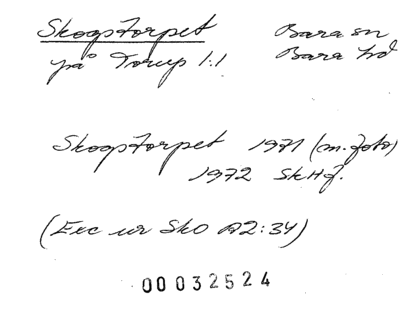 Skogstorpet Bara sn
på Torup 1:1 Bara hd
Skogstorpet 1971 (m. foto)
1972 SkHf.
(Exc ur SkO A2:34)
00032524